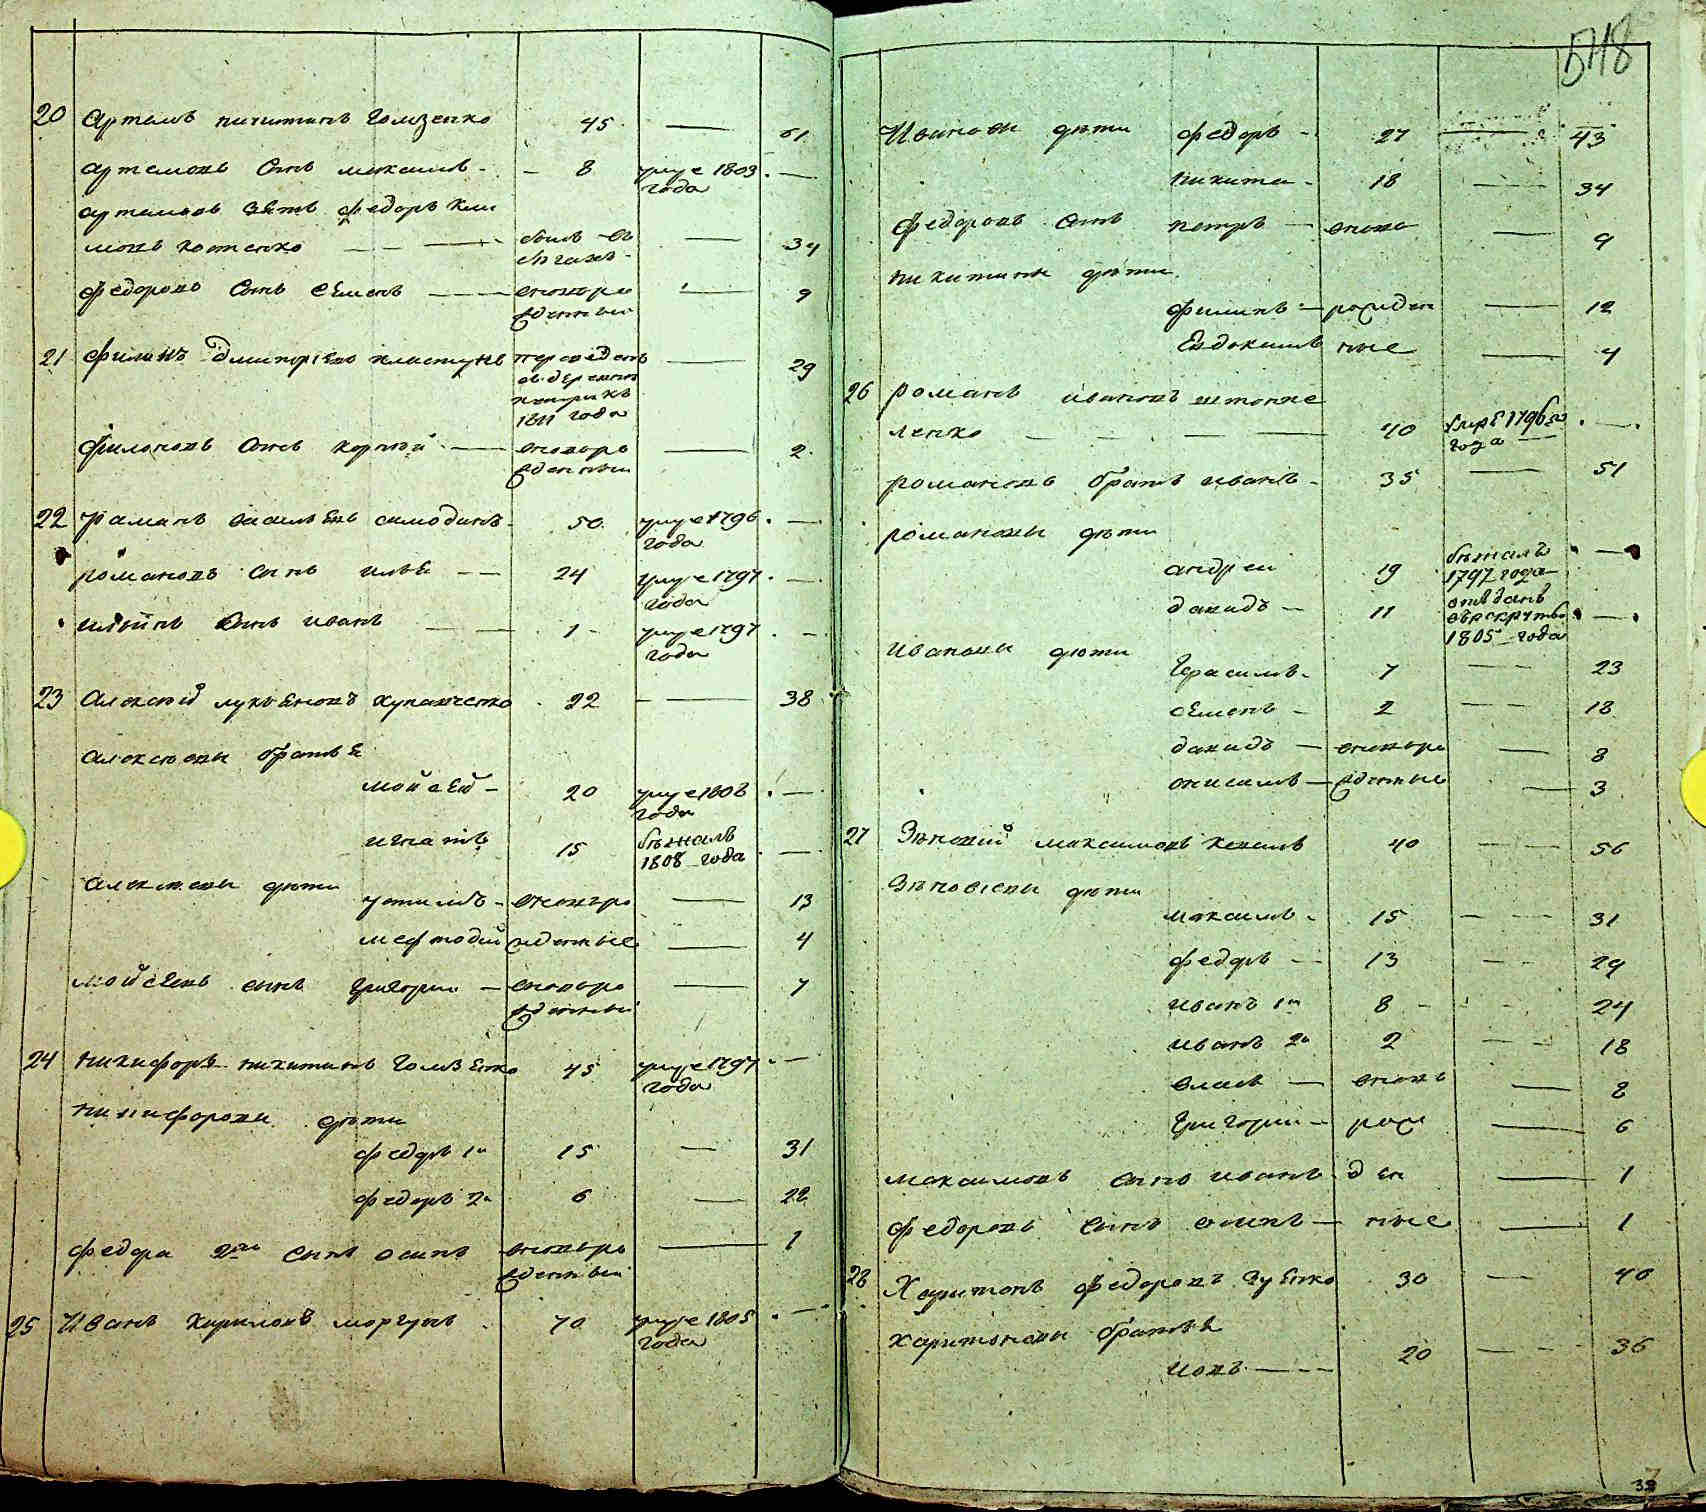 548
20 Артемъ никитинъ Гомзенко 45 — 61
артемовъ сынъ максимъ - 8 умре 1803 года —
артемовъ зять федоръ кли
мовъ костенко — 34
федоровъ сынъ семенъ — новоро 9
жденный
21 филипъ дмитріевъ пластунъ переведенъ — 29
1811 года
филиповъ сынъ корней — новоро — 2
жденный
22 романъ васильевъ самоданъ 50 умре 1796 года —
романовъ сынъ илья — 24 умре 1797 года —
ильинъ сынъ иванъ — 1 умре 1797 года —
23 алексей лукьяновъ 22 — 38
алексеевы братья
мойсей - 20 умре 1808 года —
игнатъ 15 бежалъ 1808 года —
алексеевы дети
- новоро — 13
мефодий жденные — 4
мойсеевъ сынъ григорий — новоро — 7
жденный
24 никифоръ никитинъ Гомзенко 45 умре 1797 года —
никифоровы дети
федоръ 1й 15 — 31
федоръ 2й 6 — 22
федора 2го сынъ осипъ новоро — 1
жденный
25 Иванъ кириловъ моргунъ 70 умре 1805 года —
Ивановы дети федоръ - 27 — 43
никита - 18 — 34
федоровъ сынъ петръ — ново — 9
никитины дети
филипъ — рожден — 12
Евдокимъ ные — 4
26 романъ ивановъ
ленко — 40 умре 1796 года —
романовъ братъ иванъ - 35 — 51
романовы дети
андрей 19 бежалъ 1797 года —
давидъ - 11 отданъ
въ рекруты
1805 года —
ивановы дети
Герасимъ - 7 — 23
семенъ - 2 — 18
давидъ — новоро — 8
онисимъ — жденные — 3
27 Зеновий максимовъ 40 — 56
Зеновиевы дети
максимъ - 15 — 31
федоръ — 13 — 29
иванъ 1й 8 — 24
иванъ 2й 2 — 18
власъ — ново — 8
григорий — рож — 6
максимовъ сынъ иванъ ден — 1
федоровъ сынъ осипъ — ные — 1
28 Харитонъ федоровъ зуенко 30 — 46
харитоновы братья
иовъ — 20 — 36